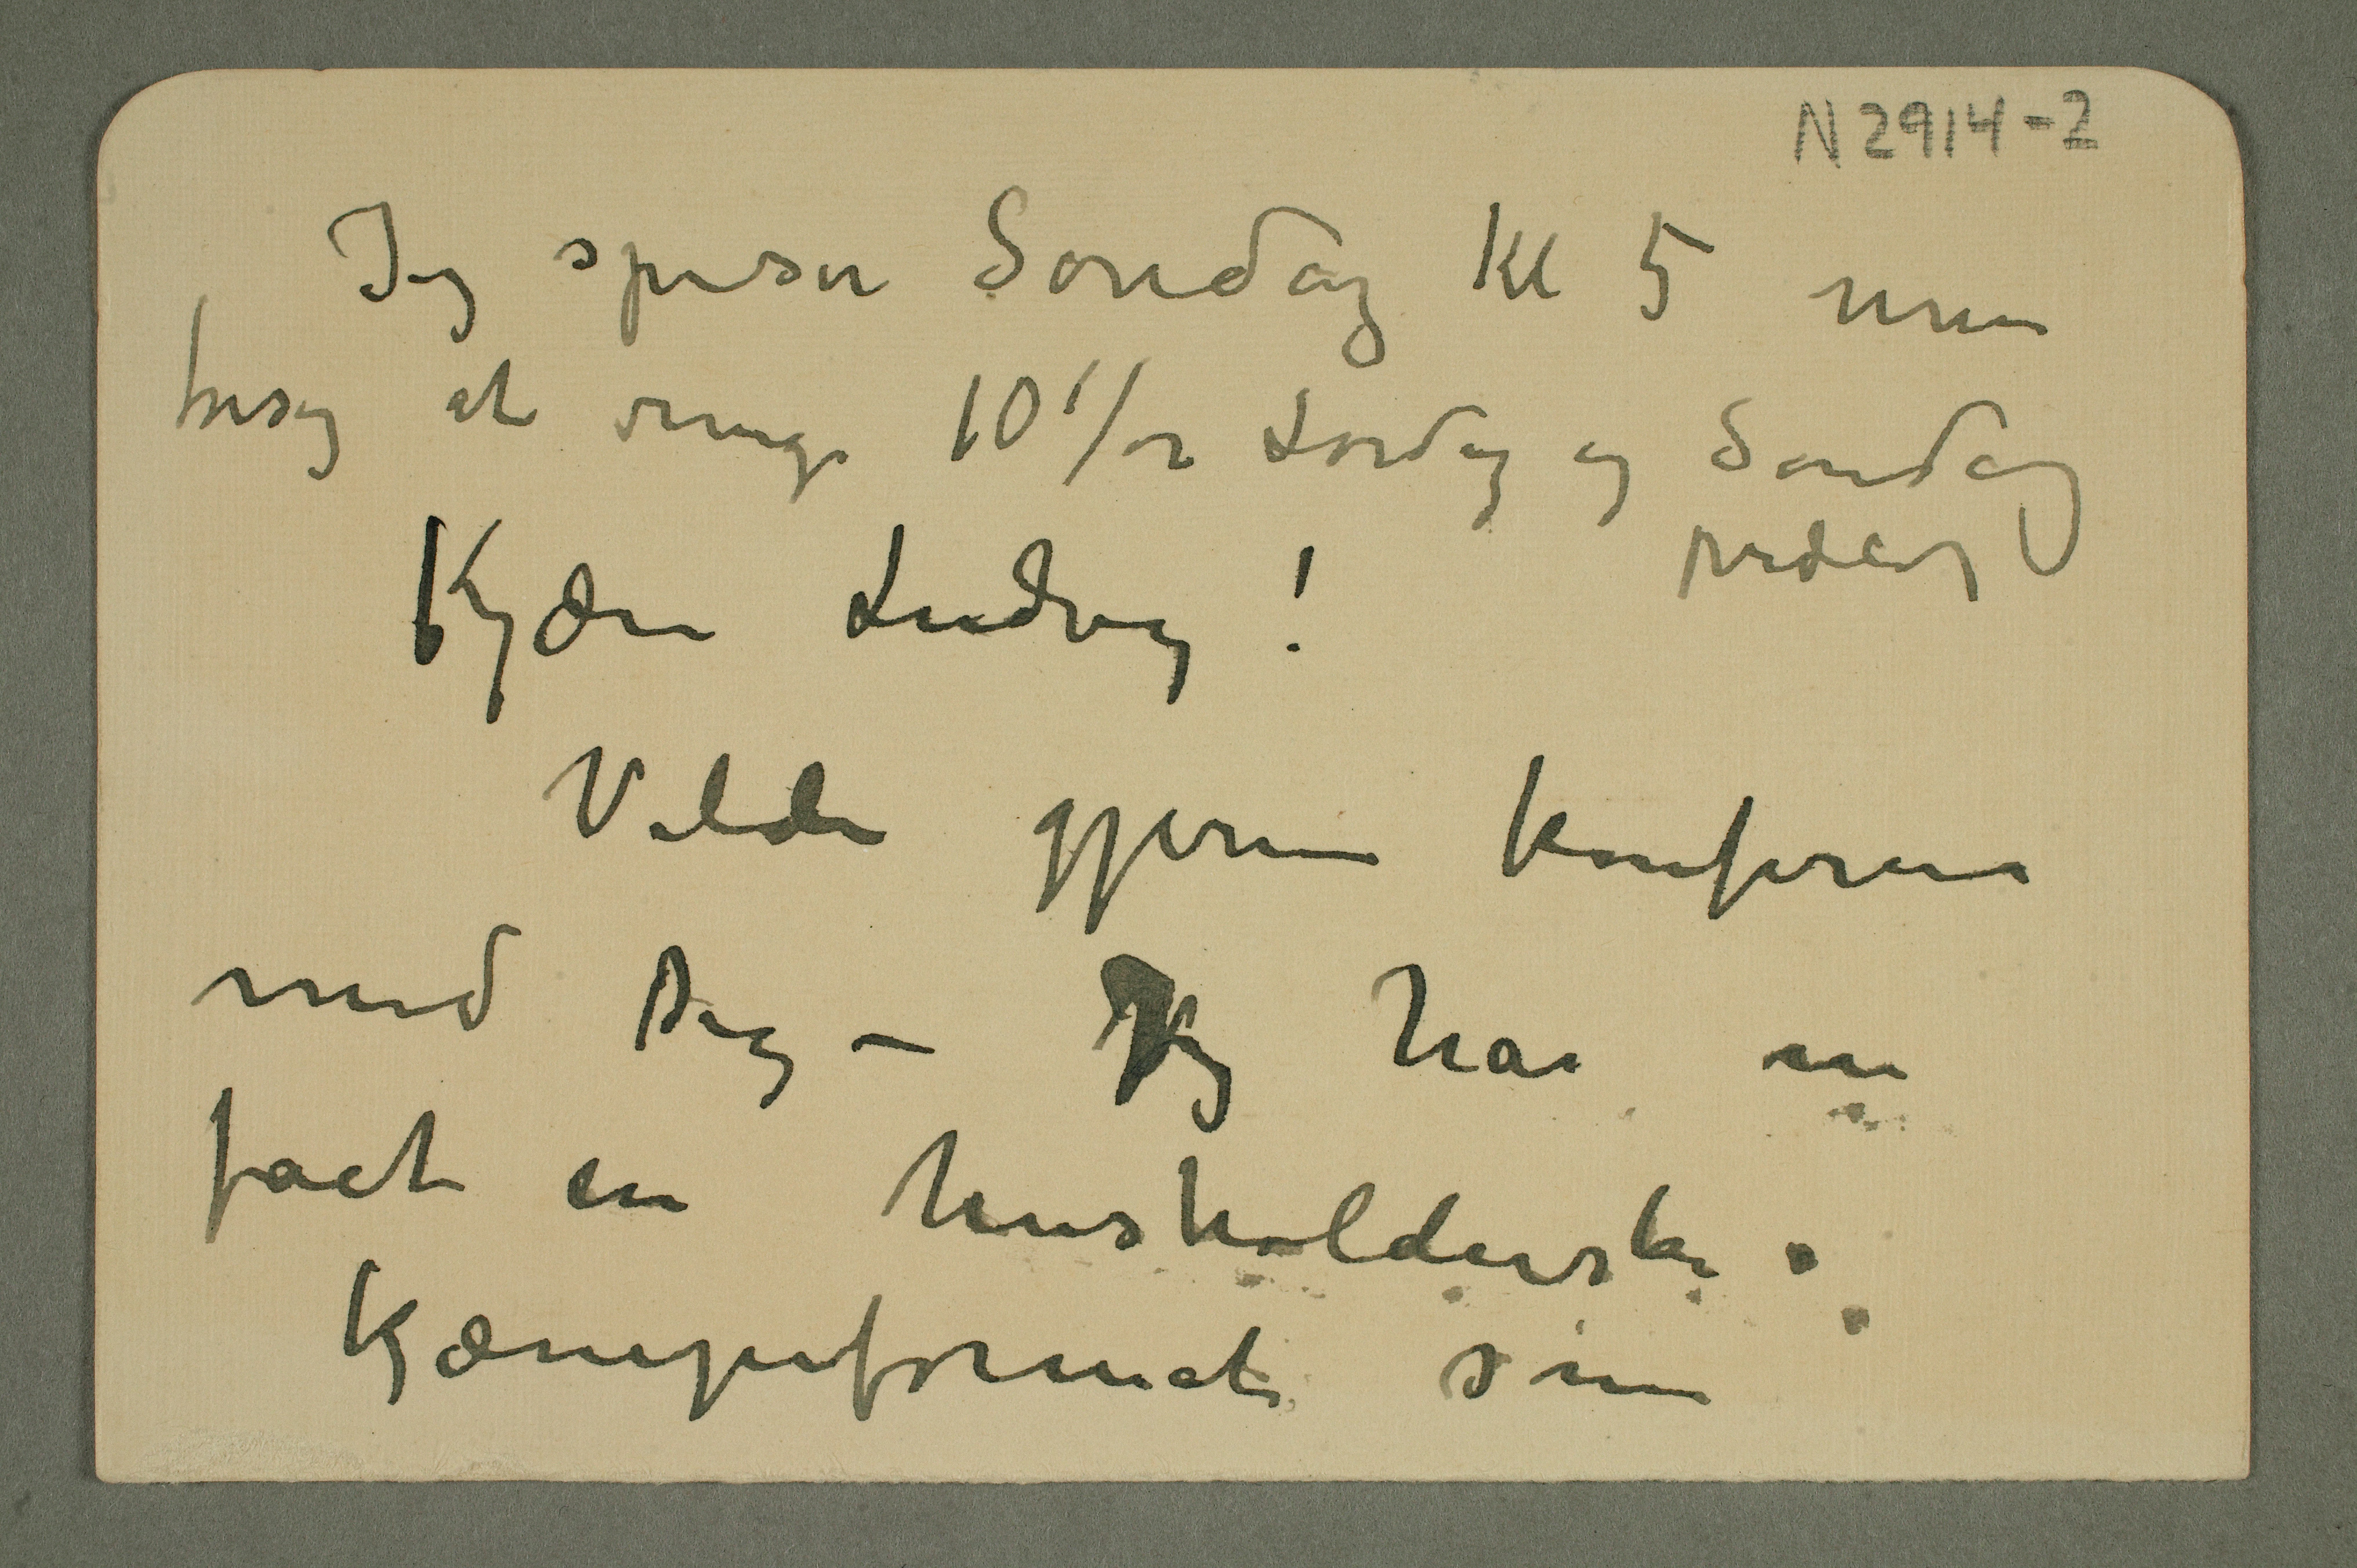 N 2914-2
Jeg spiser Søndag Kl 5 men
forsøg at ringe 10 1/2 Lørdag og Søndag
Kjære Ludvig!
Vilde gjerne konferere
med Dig – Jeg har nu
faat en husholderske i
Kjæmpeformat som